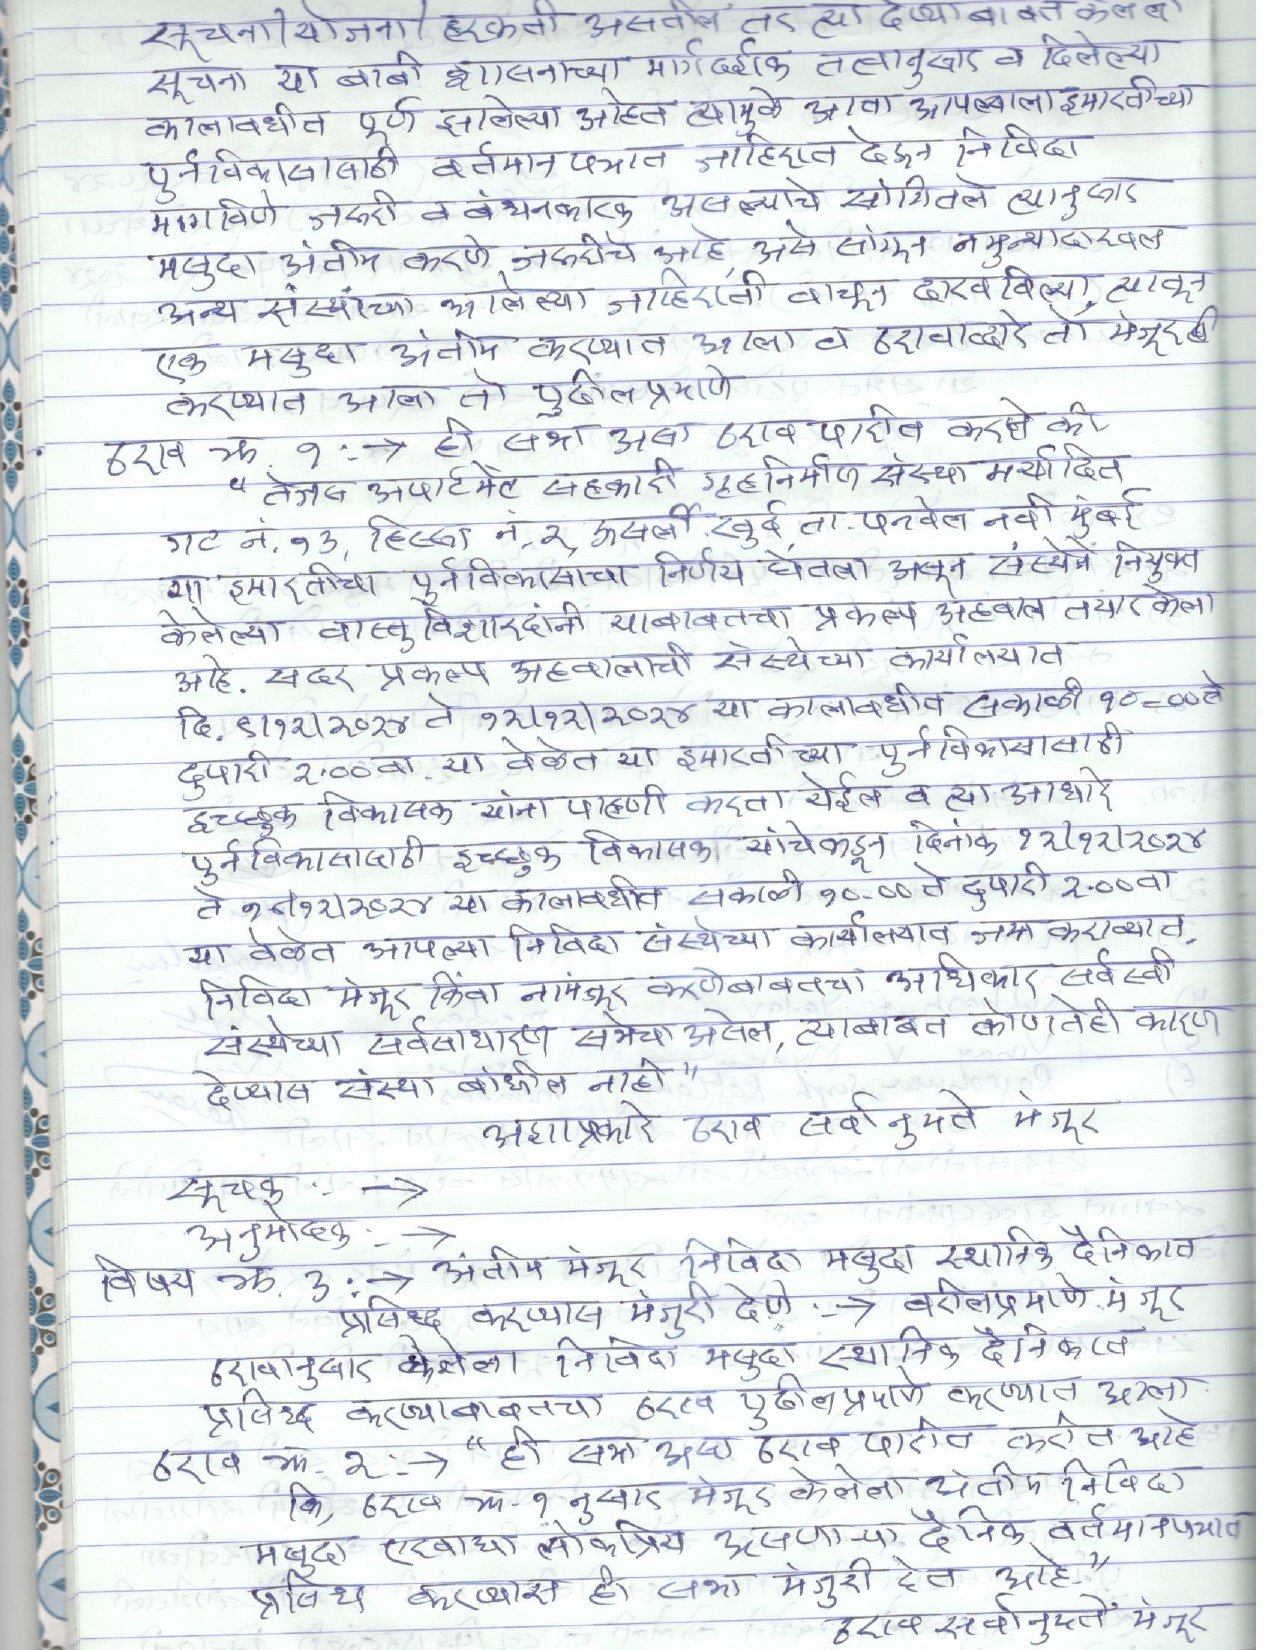 सूचना/योजना/हरकती असतील तर त्या देण्याबाबत केलेली
सूचना या बाबी शासनाच्या मार्गदर्शक तत्वानुसार व दिलेल्या
कालावधीत पूर्ण झालेल्या आहेत त्यामुळे आता आपल्याला इमारतीच्या
पुर्नविकासासाठी वर्तमान पत्रात जाहिरात देऊन निविदा
मागविणे जरुरी व बंधनकारक असल्याचे सांगितले त्यानुसार
मसुदा अंतीम करणे जरुरीचे आहे, असे सांगून नमुन्यादाखल
अन्य संस्थांच्या आलेल्या जाहिराती वाचून दाखविल्या, त्यातून
एक मसुदा अंतीम करण्यात आला व ठरावाव्दारे तो मंजूरही
करण्यात आला तो पुढीलप्रमाणे
ठराव क्र. १ :→ ही सभा असा ठराव पारीत करते की
" तेजस अपार्टमेंट सहकारी गृहनिर्माण संस्था मर्यादित
गट नं. १३, हिस्सा नं. २, आसर्ली खुर्द, ता. पनवेल नवी मुंबई
या इमारतीचा पुर्नविकासाचा निर्णय घेतला असून संस्थेने नियुक्त
केलेल्या वास्तुविशारदांनी याबाबतचा प्रकल्प अहवाल तयार केला
आहे. सदर प्रकल्प अहवालाची संस्थेच्या कार्यालयात
दि. ९/१२/२०२४ ते १२/१२/२०२४ या कालावधीत सकाळी १०=०० ते
दुपारी २.०० वा. या वेळेत या इमारतीच्या पुर्नविकासासाठी
इच्छुक विकासक यांना पाहणी करता येईल व त्या आधारे
पुर्नविकासासाठी इच्छुक विकासक यांचेकडून दिनांक १२/१२/२०२४
ते /१२/२०२४ या कालावधीत सकाळी १०-०० ते दुपारी २.०० वा
या वेळेत आपल्या निविदा संस्थेच्या कार्यालयात जमा कराव्यात.
निविदा मंजूर किंवा नामंजूर करणेबाबतचा अधिकार सर्वस्वी
संस्थेच्या सर्वसाधारण सभेचा असेल, त्याबाबत कोणतेही कारण
देण्यास संस्था बांधील नाही"
अशाप्रकारे ठराव सर्वानुमते मंजूर
सूचक :- →
अनुमोदक :- →
विषय क्र. ३ :→ अंतीम मंजूर निविदा मसुदा स्थानिक दैनिकात
प्रसिध्द करण्यास मंजुरी देणे :→ वरीलप्रमाणे मंजूर
ठरावानुसार केलेला निविदा मसुदा स्थानिक दैनिकात
प्रसिध्द करण्याबाबतचा ठराव पुढीलप्रमाणे करण्यात आला
ठराव क्र. २ :→ "ही सभा असा ठराव पारीत करीत आहे
कि, ठराव क्र. १ नुसार मंजूर केलेला अंतीम निविदा
मसुदा एखाद्या लोकप्रिय असणाऱ्या दैनिक वर्तमानपत्रात
प्रसिध्द करण्यास ही सभा मंजुरी देत आहे."
ठराव सर्वानुमते मंजूर